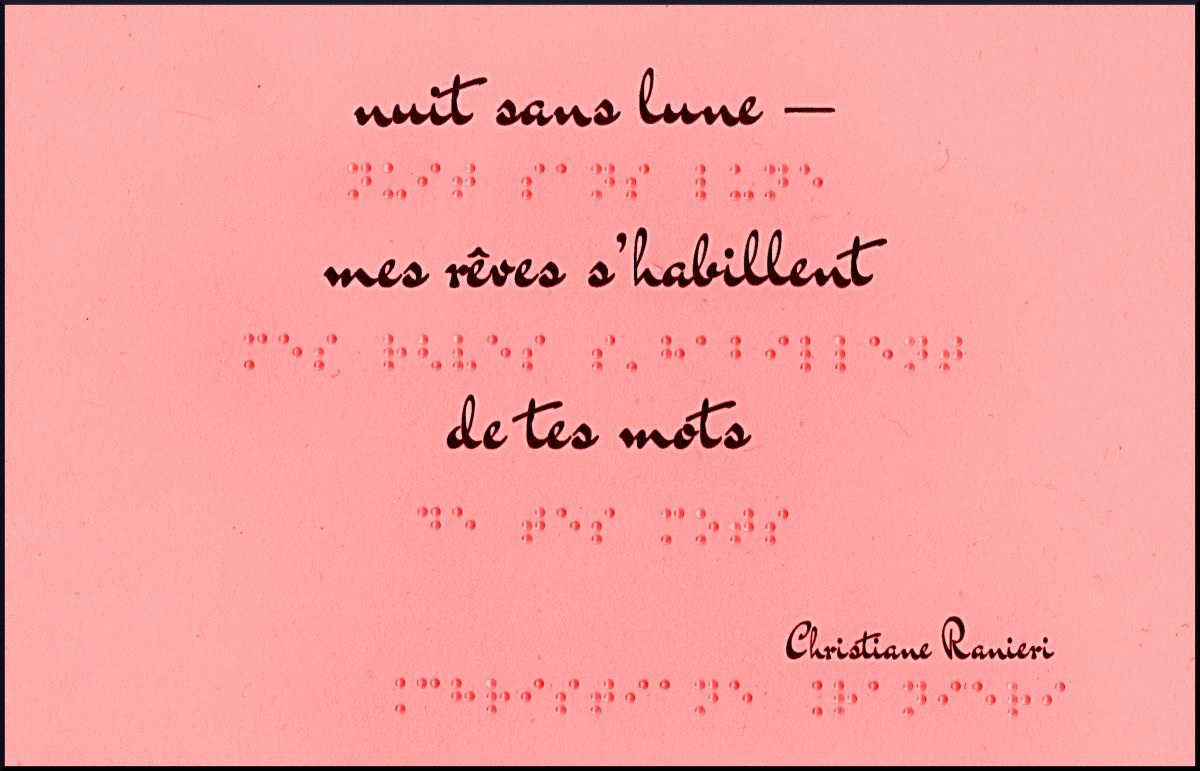 nuit sans lune —
⠝⠥⠊⠞ ⠎⠁⠝⠎ ⠇⠥⠝⠑
mes rêves s’habillent
⠍⠑⠎ ⠗⠣⠧⠑⠎ ⠎⠄⠓⠁⠃⠊⠇⠇⠑⠝⠞
de tes mots
⠙⠑ ⠞⠑⠎ ⠍⠕⠞⠎
Christiane Ranieri
⠨⠉⠓⠗⠊⠎⠞⠊⠁⠝⠑ ⠨⠗⠁⠝⠊⠑⠗⠊